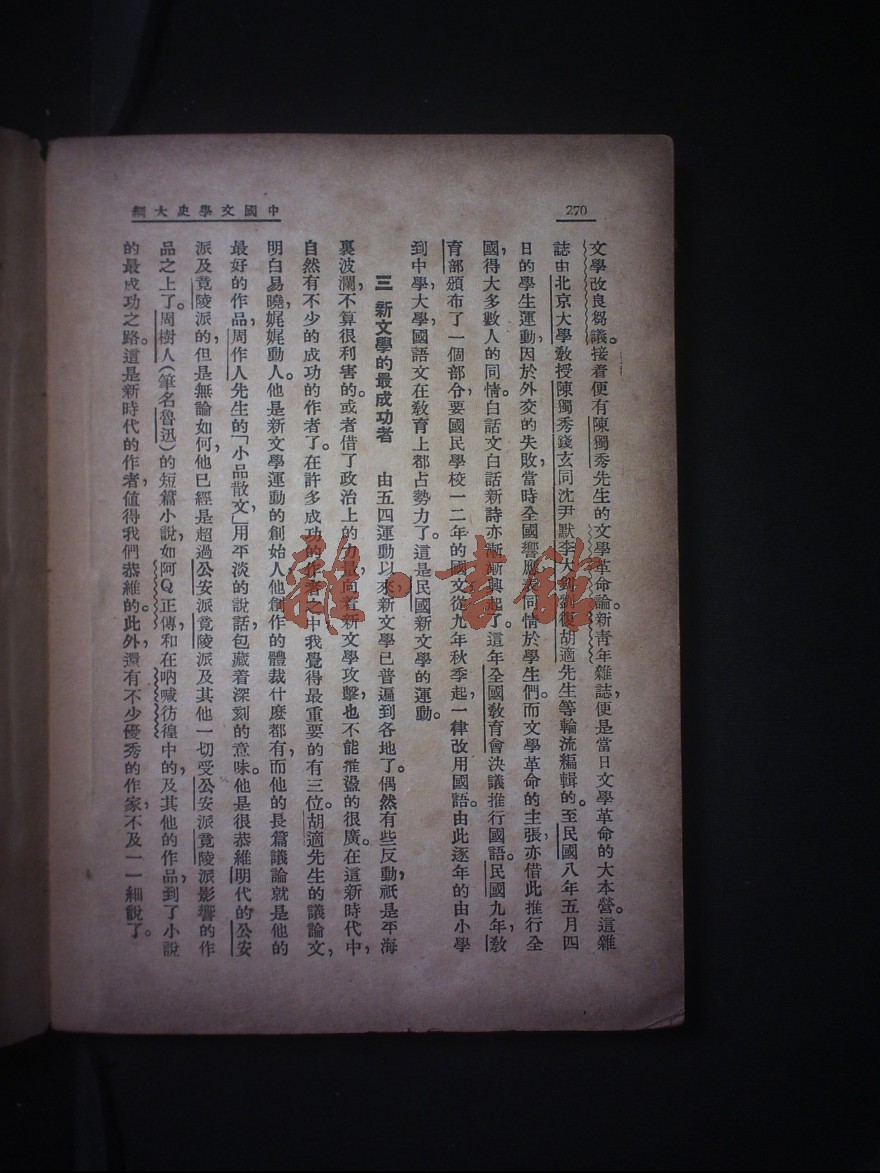 270
中國文學史大綱
文學改良芻議。接着便有陳獨秀先生的文學革命論。新青年雜誌，便是當日文學革命的大本營。這雜
誌由北京大學教授陳獨秀錢玄同沈尹默李大釗劉復胡適先生等輪流編輯的。至民國八年五月四
日的學生運動，因於外交的失敗，當時全國響應表同情於學生們。而文學革命的主張，亦借此推行全
國，得大多數人的同情。白話文白話新詩亦漸漸興起了。這年全國教育會決議推行國語。民國九年，教
育部頒布了一個部令，要國民學校一二年的國文從九年秋季起，一律改用國語。由此逐年的由小學
到中學，大學，國語文在教育上都占勢力了。這是民國新文學的運動。
三 新文學的最成功者 由五四運動以來，新文學已普遍到各地了。偶然有些反動，祇是平海
裏波瀾，不算很利害的。或者借了政治上的力量，向着新文學攻擊，也不能推盪的很廣。在這新時代中，
自然有不少的成功的作者了。在許多成功的作者之中，我覺得最重要的有三位。胡適先生的議論文，
明白易曉，娓娓動人。他是新文學運動的創始人，他創作的體裁什麼都有，而他的長篇議論就是他的
最好的作品，周作人先生的「小品散文，」用平淡的說話，包藏着深刻的意味。他是很恭維明代的公安
派及竟陵派的，但是無論如何，他已經是超過公安派竟陵派及其他一切受公安派竟陵派影響的作
品之上了。周樹人（筆名魯迅）的短篇小說，如阿Q正傳，和在吶喊彷徨中的，及其他的作品，到了小說
的最成功之路。這是新時代的作者，值得我們恭維的。此外，還有不少優秀的作家，不及一一細說了。
雜·書館